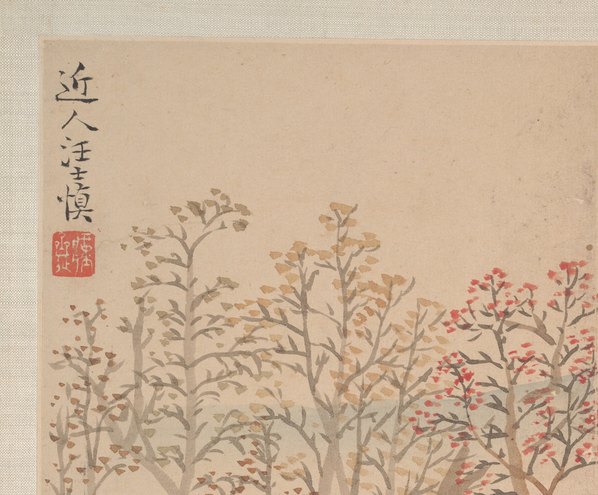 近人汪士慎